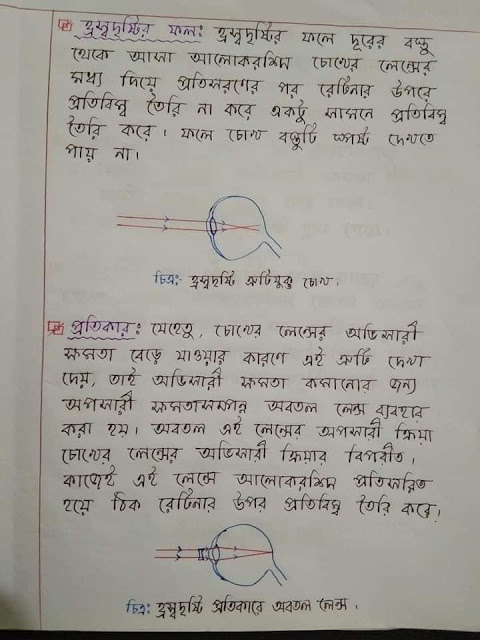 হ্রস্বদৃষ্টির ফল: হ্রস্বদৃষ্টির ফলে দূরের বস্তু
থেকে আসা আলোকরশ্মি চোখের লেন্সের
মধ্য দিয়ে প্রতিসরণের পর রেটিনার উপরে
প্রতিবিম্ব তৈরি না করে একটু সামনে প্রতিবিম্ব
তৈরি করে। ফলে চোখ বস্তুটি স্পষ্ট দেখতে
পায় না।
চিত্র: হ্রস্বদৃষ্টি ত্রুটিযুক্ত চোখ।
প্রতিকার: যেহেতু, চোখের লেন্সের অভিসারী
ক্ষমতা বেড়ে যাওয়ার কারণে এই ত্রুটি দেখা
দেয়, তাই অভিসারী ক্ষমতা কমানোর জন্য
অপসারী ক্ষমতাসম্পন্ন অবতল লেন্স ব্যবহার
করা হয়। অবতল এই লেন্সের অপসারী ক্রিয়া
চোখের লেন্সের অভিসারী ক্রিয়ার বিপরীত।
কাজেই এই লেন্সে আলোকরশ্মি প্রতিসরিত
হয়ে ঠিক রেটিনার উপর প্রতিবিম্ব তৈরি করে।
চিত্র: হ্রস্বদৃষ্টি প্রতিকারে অবতল লেন্স।